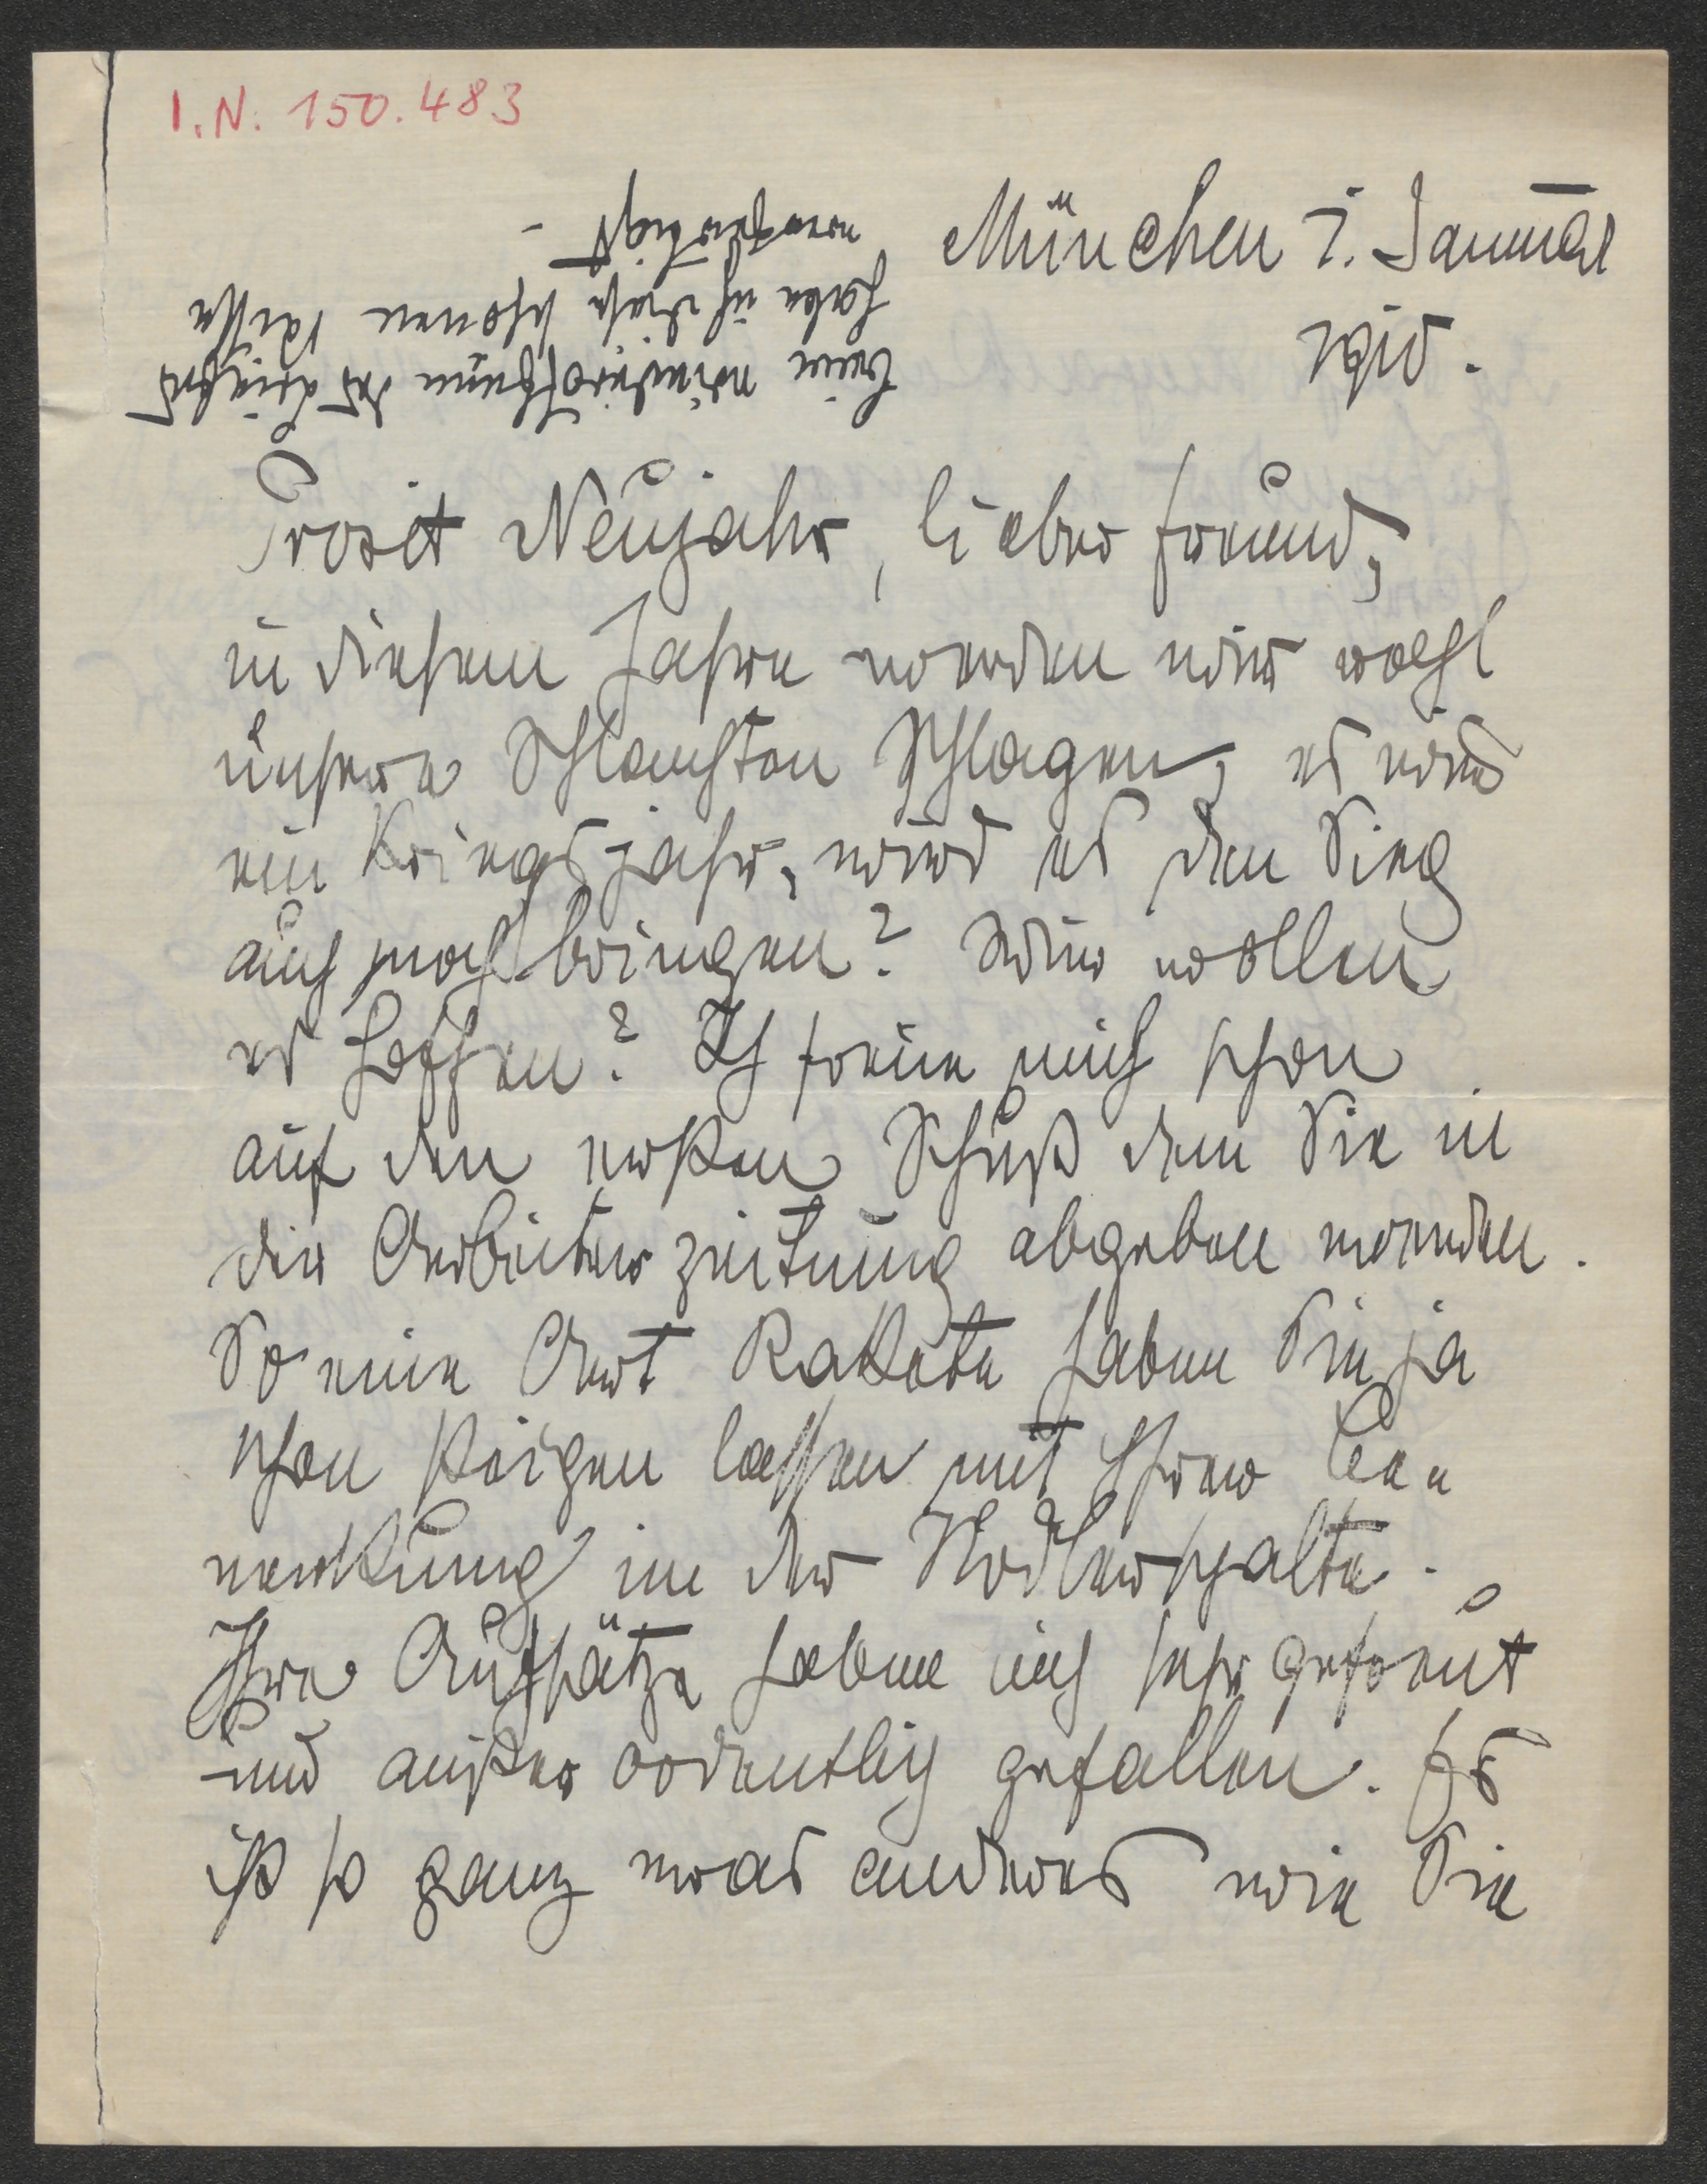 I. N. 150.483
München 1. Januar
1910.
beim wiederöffnen des Briefes
habe ich diese schönen Risse
verfertigt -
Prosit Neujahr, lieber Freund,
in diesem Jahre werden wir wohl
unsere Schlachten schlagen, es wird
ein Kriegsjahr, wird es den Sieg
auch noch bringen? Wir wollen
es hoffen? Ich freue mich schon
auf den ersten Schuß den Sie in
die Arbeiterzeitung abgeben werden.
So eine Art Rakete haben Sie ja
schon steigen lassen mit Ihrer Be-
merkung in der Hodlerspalte.
Ihre Aufsätze haben mich sehr gefreut
und außerordentlich gefallen. Es
ist so ganz was anderes wie Sie